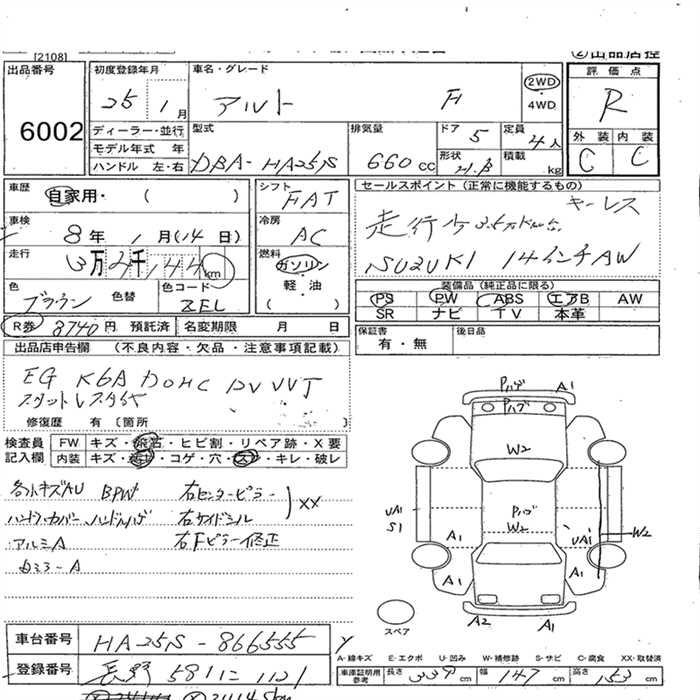 [2108]
②出品店控
出品番号
6002
初度登録年月
25 1月
車名・グレード
アルト F
2WD
4WD
評価点
R
ディーラー・並行
モデル年式 年
ハンドル 左・右
型式
DBA-HA25S
排気量
660cc
ドア
5
形状
定員
4人
積載
kg
外装 内装
C C
車歴
自家用・( )
車検
8年1月(14日)
走行
3万2千144km
色
ブラウン
色替
色コード
ZEL
シフト
FAT
冷房
AC
燃料
ガソリン
軽・油
( )
セールスポイント(正常に機能するもの)
キーレス
走行少
SUZUKI 14インチAW
装備品(純正品に限る)
PS PW ABS エアB AW
SR ナビ TV 本革
保証書
有・無
後日品
R券 8740円 預託済 名変期限 月 日
出品店申告欄 (不良内容・欠品・注意事項記載)
EG K6A DOHC VVT
修復歴 有 〔箇所
検査員
記入欄
FW キズ・飛石・ヒビ割・リペア跡・X要
内装 キズ・汚レ・コゲ・穴・スレ・キレ・破レ
各小キズAU BPW 右センターピラー
ハンドルカバー ハンドルハゲ 右サイドシル XX
アルミA 右Fピラー修正
Pハゲ A1
Pハゲ
W2
Pハゲ
W2
UA1
S1
UA1
W2
A1
A1
A1
A2 A1
スペア
車台番号
HA25S-866555
登録番号
長野 581 1121
A-線キズ E-エクボ U-凹み W-補修跡 S-サビ C-腐食 XX-取替済
車庫証明用
参考
長さ 339cm 幅 147cm 高さ 153cm